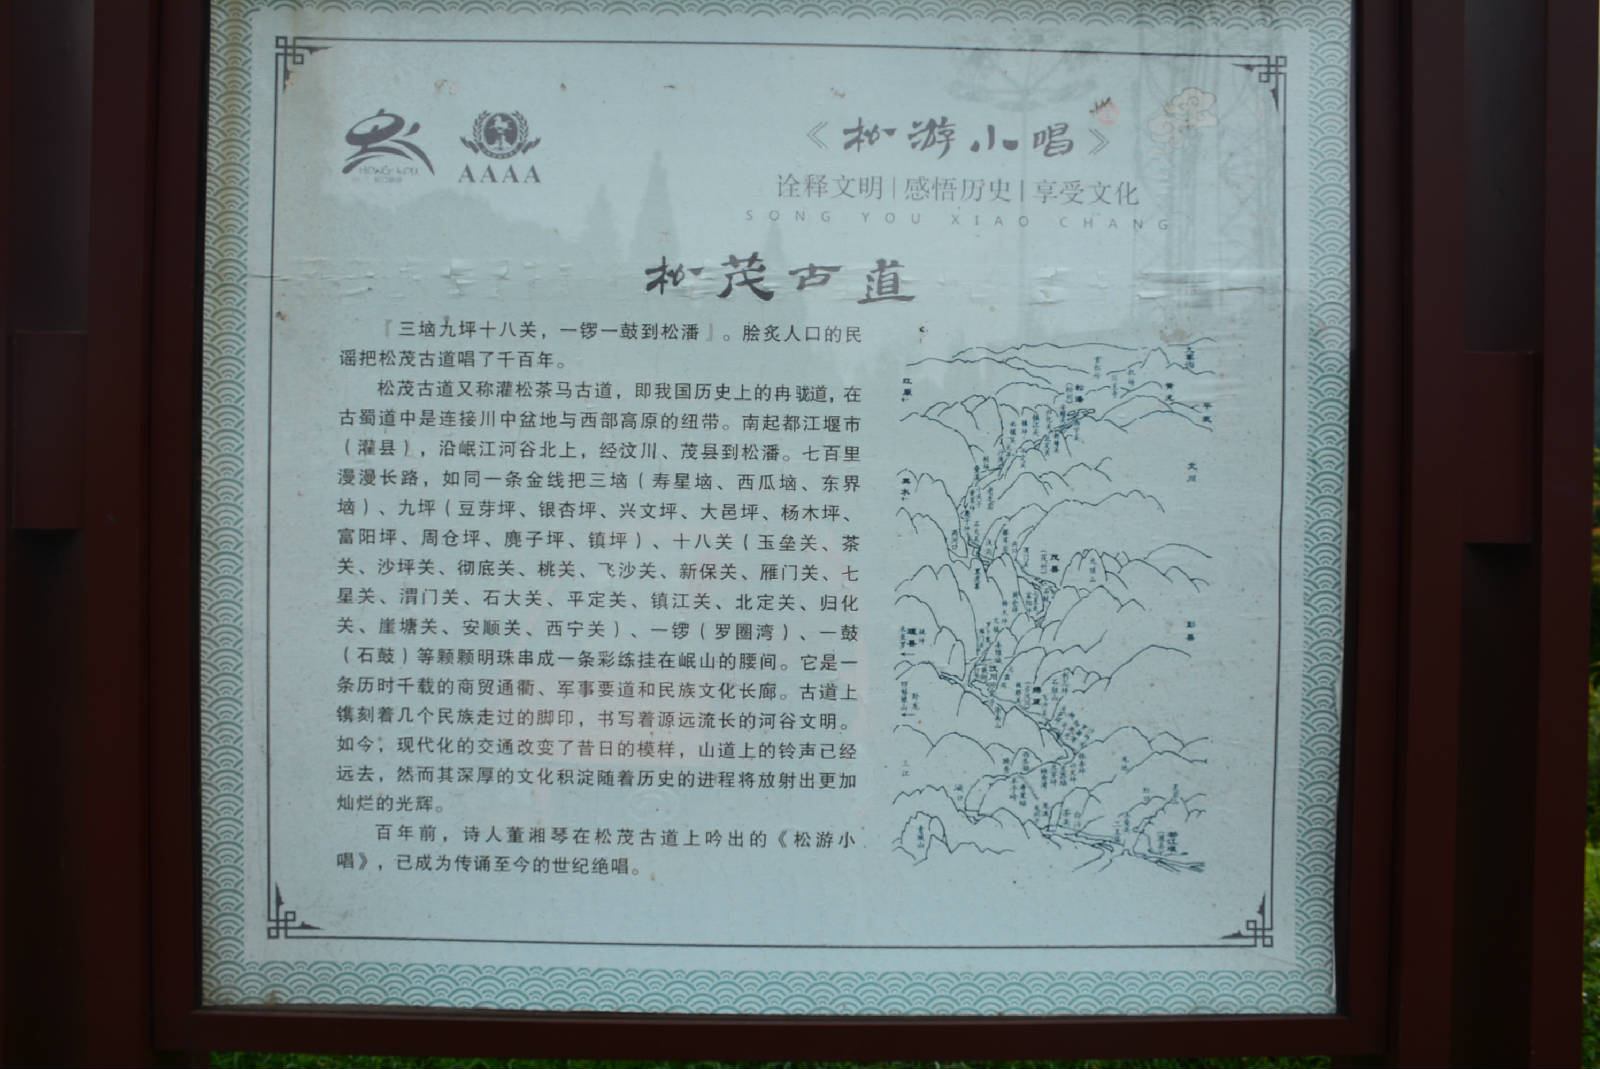 AAAA
《松游小唱》
诠释文明|感悟历史|享受文化
SONG YOU XIAO CHANG
松茂古道
『三垴九坪十八关，一锣一鼓到松潘』。脍炙人口的民
谣把松茂古道唱了千百年。
松茂古道又称灌松茶马古道，即我国历史上的冉駹道，在
古蜀道中是连接川中盆地与西部高原的纽带。南起都江堰市
（灌县），沿岷江河谷北上，经汶川、茂县到松潘。七百里
漫漫长路，如同一条金线把三垴（寿星垴、西瓜垴、东界
垴）、九坪（豆芽坪、银杏坪、兴文坪、大邑坪、杨木坪、
富阳坪、周仓坪、麂子坪、镇坪）、十八关（玉垒关、茶
关、沙坪关、彻底关、桃关、飞沙关、新保关、雁门关、七
星关、渭门关、石大关、平定关、镇江关、北定关、归化
关、崖塘关、安顺关、西宁关）、一锣（罗圈湾）、一鼓
（石鼓）等颗颗明珠串成一条彩练挂在岷山的腰间。它是一
条历时千载的商贸通衢、军事要道和民族文化长廊。古道上
镌刻着几个民族走过的脚印，书写着源远流长的河谷文明。
如今，现代化的交通改变了昔日的模样，山道上的铃声已经
远去，然而其深厚的文化积淀随着历史的进程将放射出更加
灿烂的光辉。
百年前，诗人董湘琴在松茂古道上吟出的《松游小
唱》，已成为传诵至今的世纪绝唱。
红原
松潘
黄龙
平武
黑水
文川
茂县
九顶山
彭县
理县
汶川
三江
青城山
都江堰